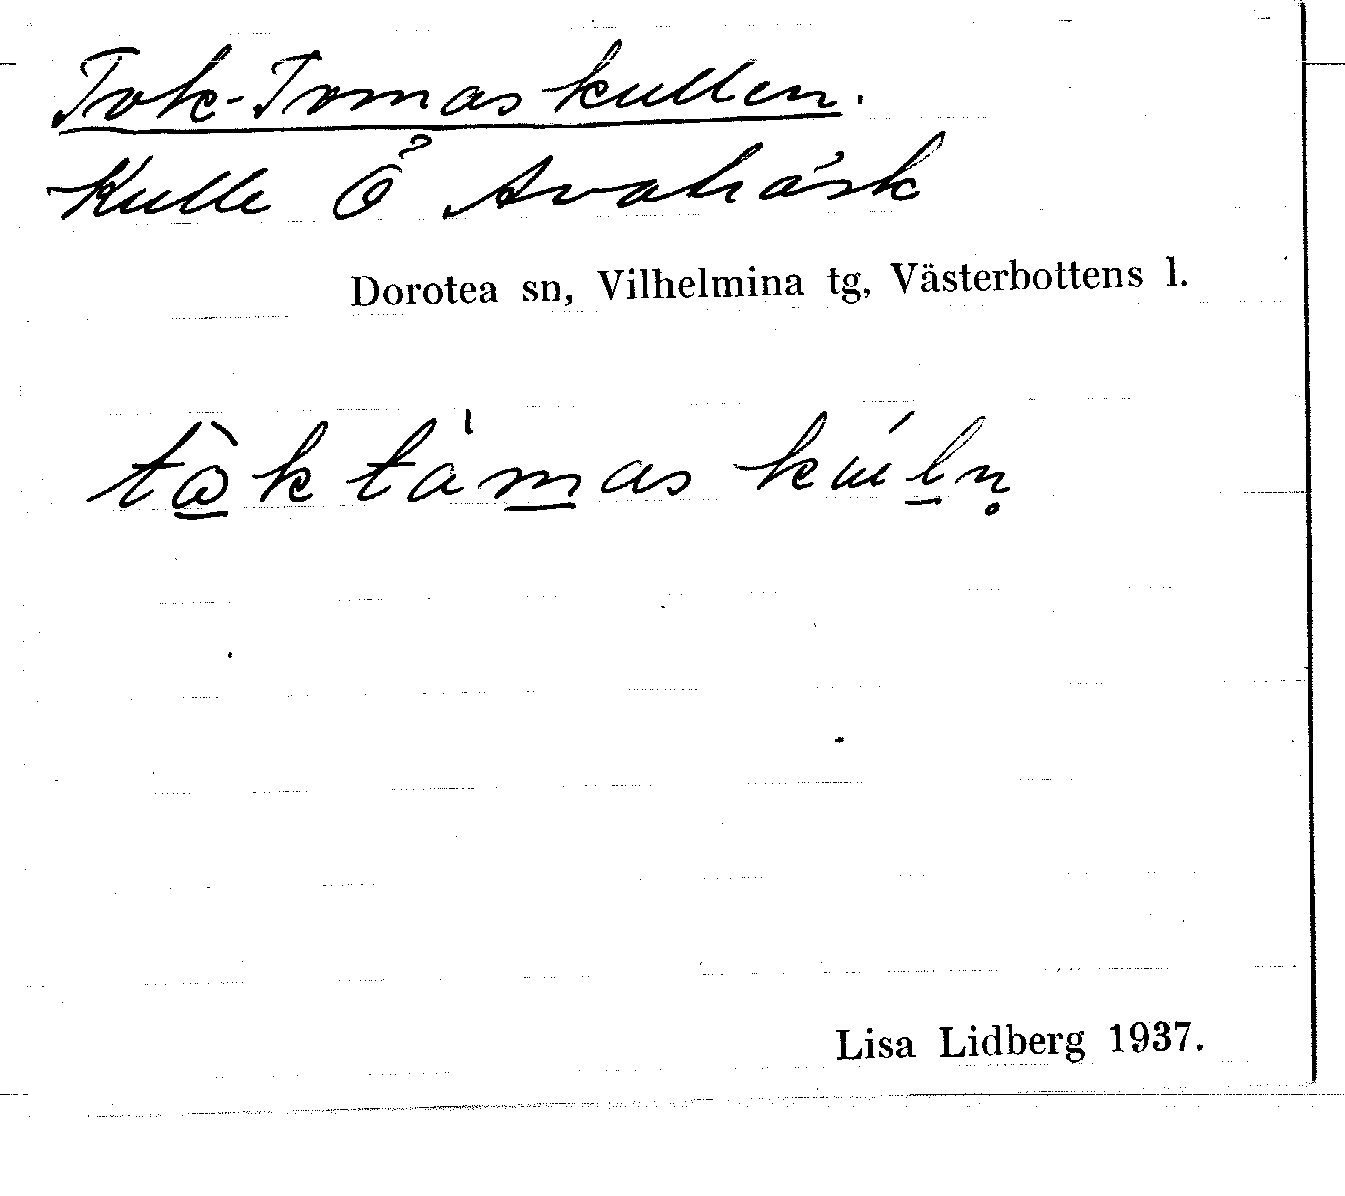 Tok-Tomaskullen.
Kulle Ö Avaträsk
Dorotea sn, Vilhelmina tg, Västerbottens l.
Lisa Lidberg 1937.